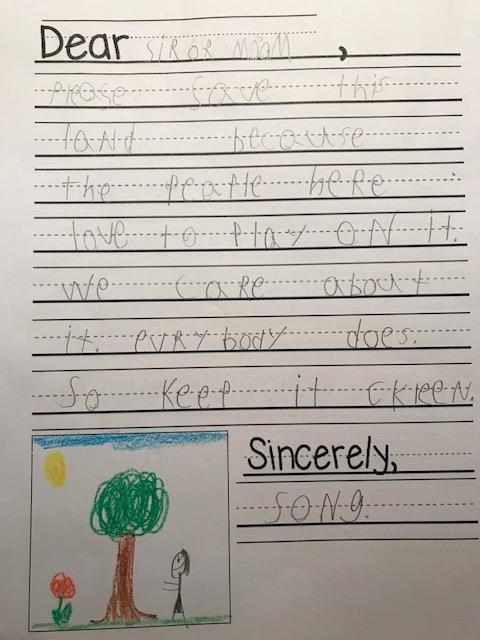 Dear SIR OR MaaM,
Please Save this
land because
the peaple here
love to play ON it.
We care about
it. evrybody does.
So keep it ckreen.
Sincerely,
SONg.